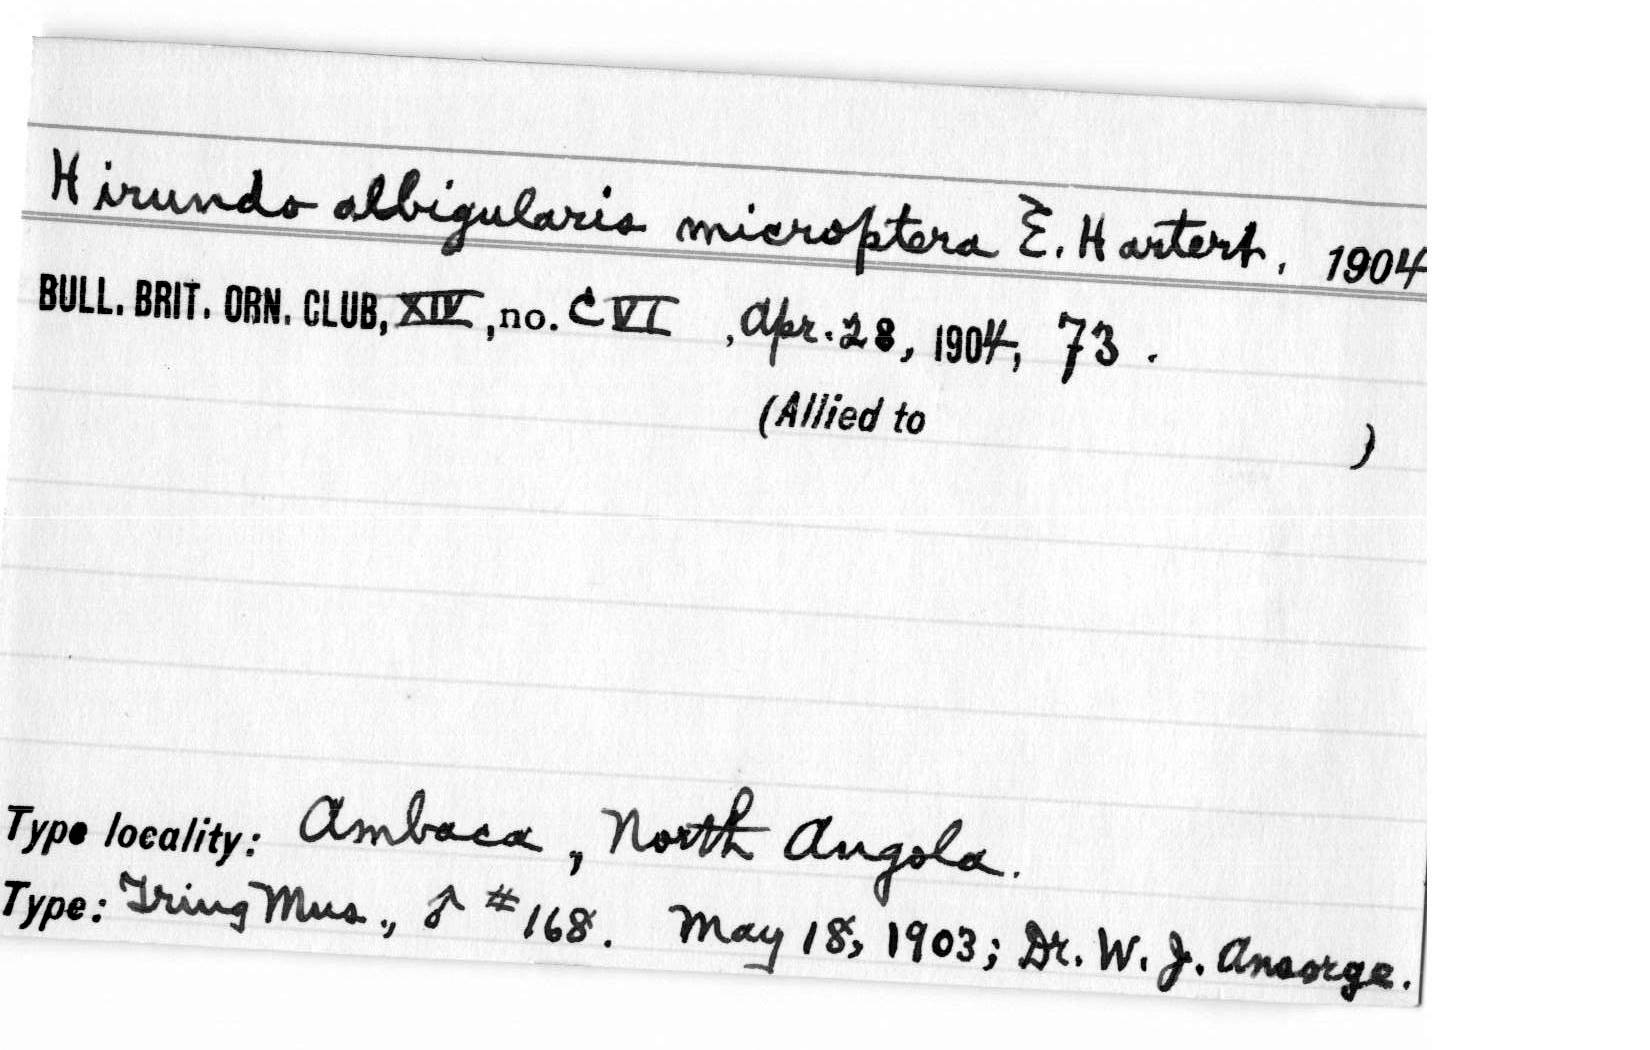 Hirundo albigularis microptera E. Hartert, 1904
BULL. BRIT. ORN. CLUB, XIV, no. CVI, Apr. 28, 1904, 73.
(Allied to )
Type locality: Ambaca, North Angola.
Type: Tring Mus., ♂ #168. May 18, 1903; Dr. W. J. Ansorge.